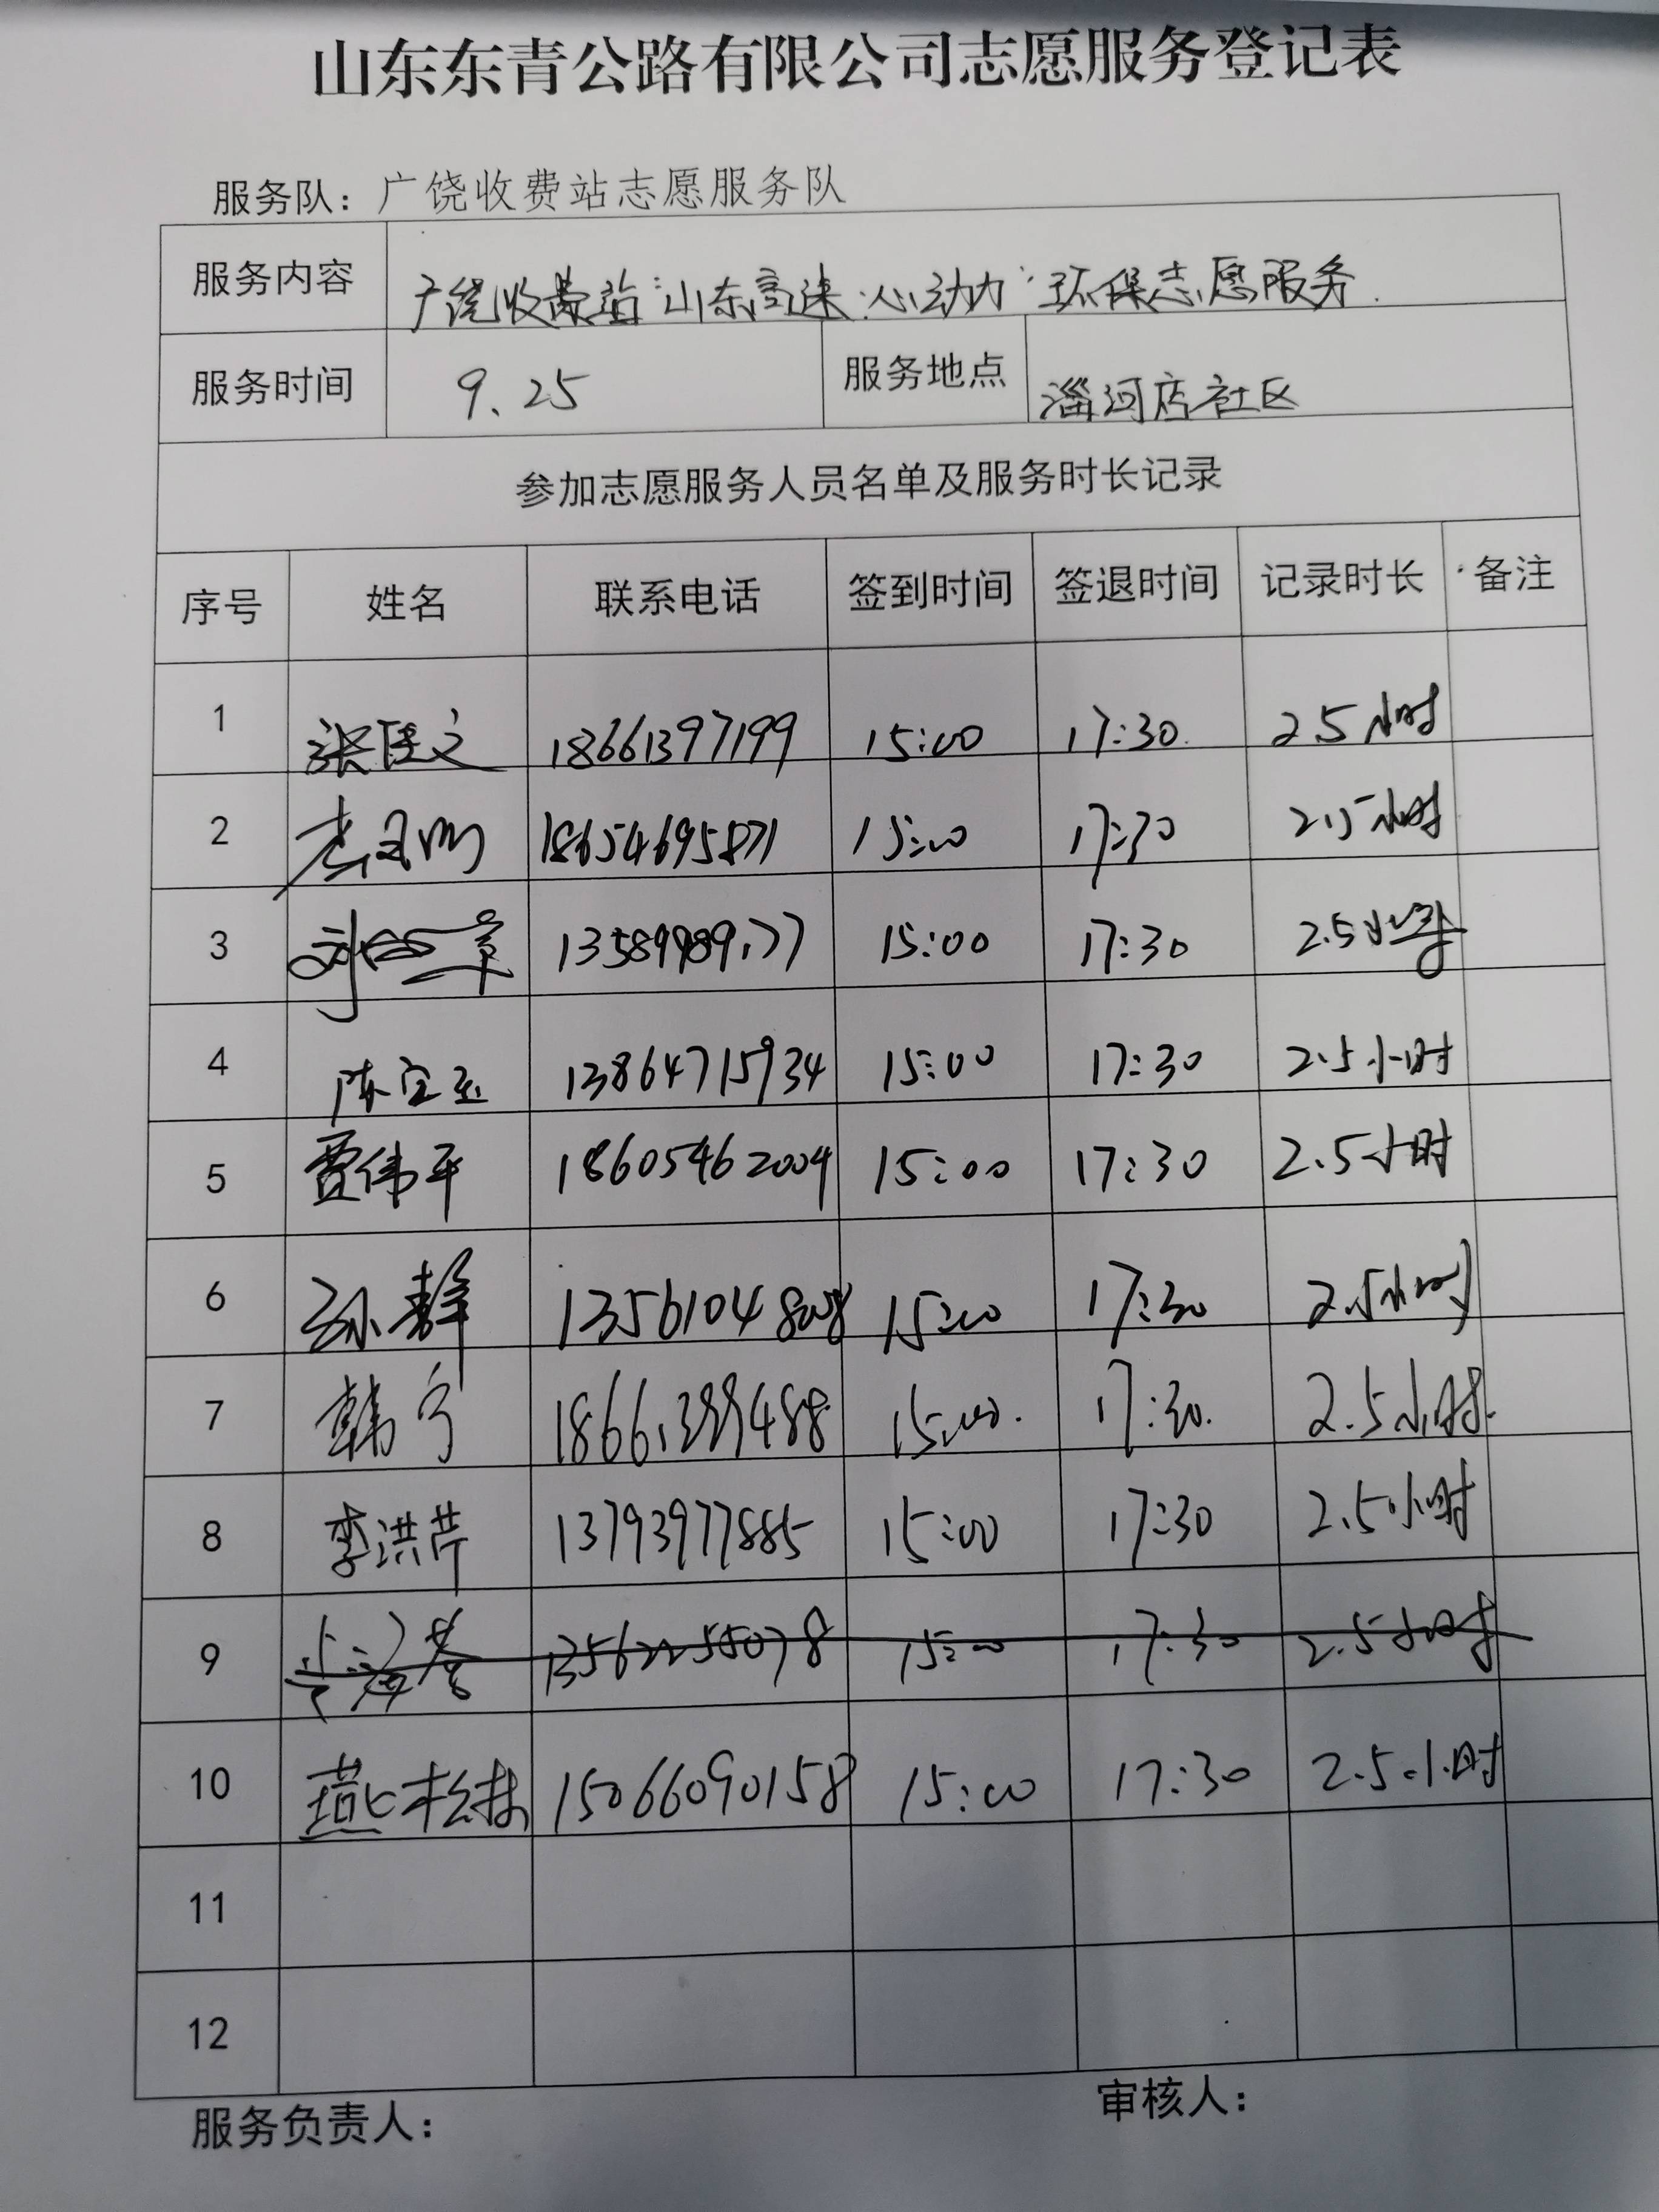 山东东青公路有限公司志愿服务登记表
服务队：广饶收费站志愿服务队
服务内容 广饶收费站“山东高速·心动力”环保志愿服务
服务时间 9.25 服务地点 淄河店社区
参加志愿服务人员名单及服务时长记录
序号 姓名 联系电话 签到时间 签退时间 记录时长 备注
1 18661397199 15:00 17:30 2.5小时
2 15:00 17:30 2.5小时
3 15:00 17:30 2.5小时
4 陈宝玉 13864715934 15:00 17:30 2.5小时
5 贾伟平 18605462004 15:00 17:30 2.5小时
6 孙静 13561044808 15:00 17:30 2.5小时
7 韩宁 18661399488 15:00 17:30 2.5小时
8 李洪芹 13793977885 15:00 17:30 2.5小时
9 15:00 17:30 2.5小时
10 燕松林 15066090158 15:00 17:30 2.5小时
11
12
服务负责人： 审核人：